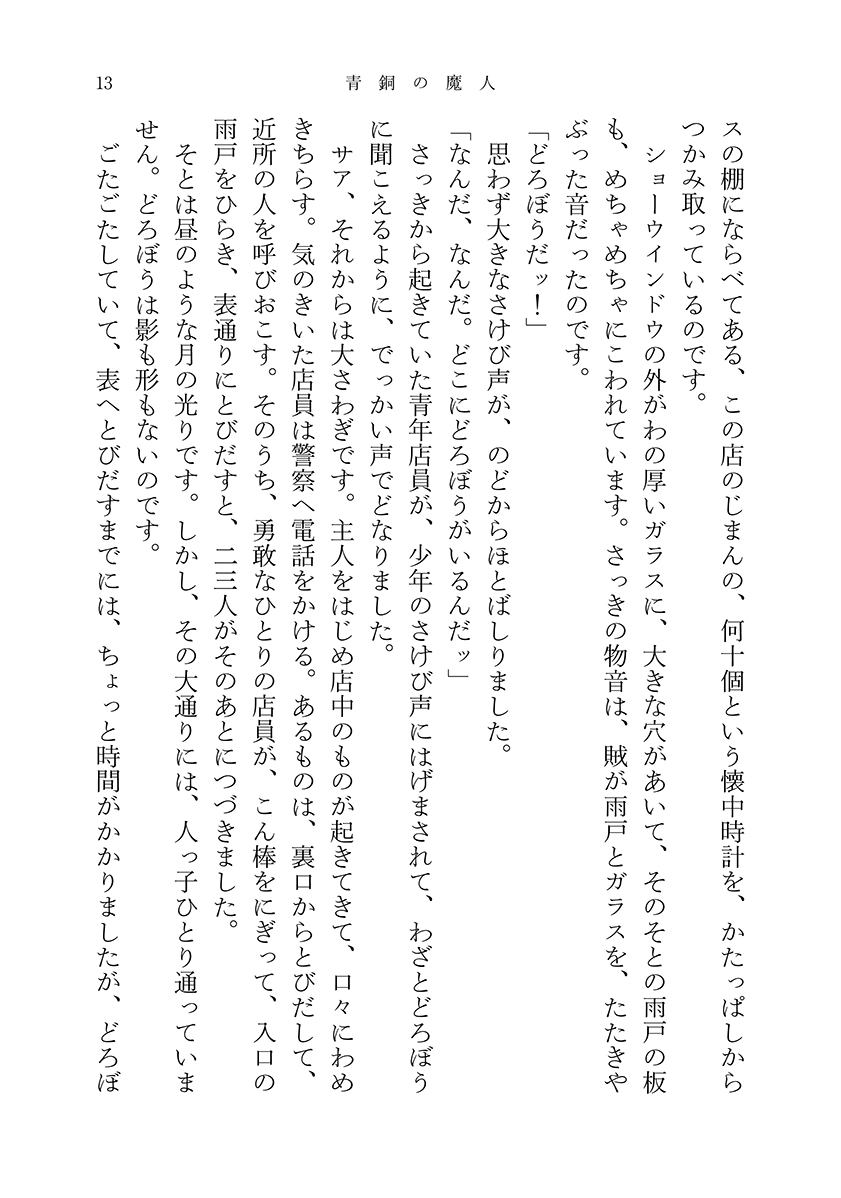 13
青銅の魔人
スの棚にならべてある、この店のじまんの、何十個という懐中時計を、かたっぱしから
つかみ取っているのです。
ショーウインドウの外がわの厚いガラスに、大きな穴があいて、そのそとの雨戸の板
も、めちゃめちゃにこわれています。さっきの物音は、賊が雨戸とガラスを、たたきや
ぶった音だったのです。
「どろぼうだッ！」
思わず大きなさけび声が、のどからほとばしりました。
「なんだ、なんだ。どこにどろぼうがいるんだッ」
さっきから起きていた青年店員が、少年のさけび声にはげまされて、わざとどろぼう
に聞こえるように、でっかい声でどなりました。
サア、それからは大さわぎです。主人をはじめ店中のものが起きてきて、口々にわめ
きちらす。気のきいた店員は警察へ電話をかける。あるものは、裏口からとびだして、
近所の人を呼びおこす。そのうち、勇敢なひとりの店員が、こん棒をにぎって、入口の
雨戸をひらき、表通りにとびだすと、二三人がそのあとにつづきました。
そとは昼のような月の光りです。しかし、その大通りには、人っ子ひとり通っていま
せん。どろぼうは影も形もないのです。
ごたごたしていて、表へとびだすまでには、ちょっと時間がかかりましたが、どろぼ